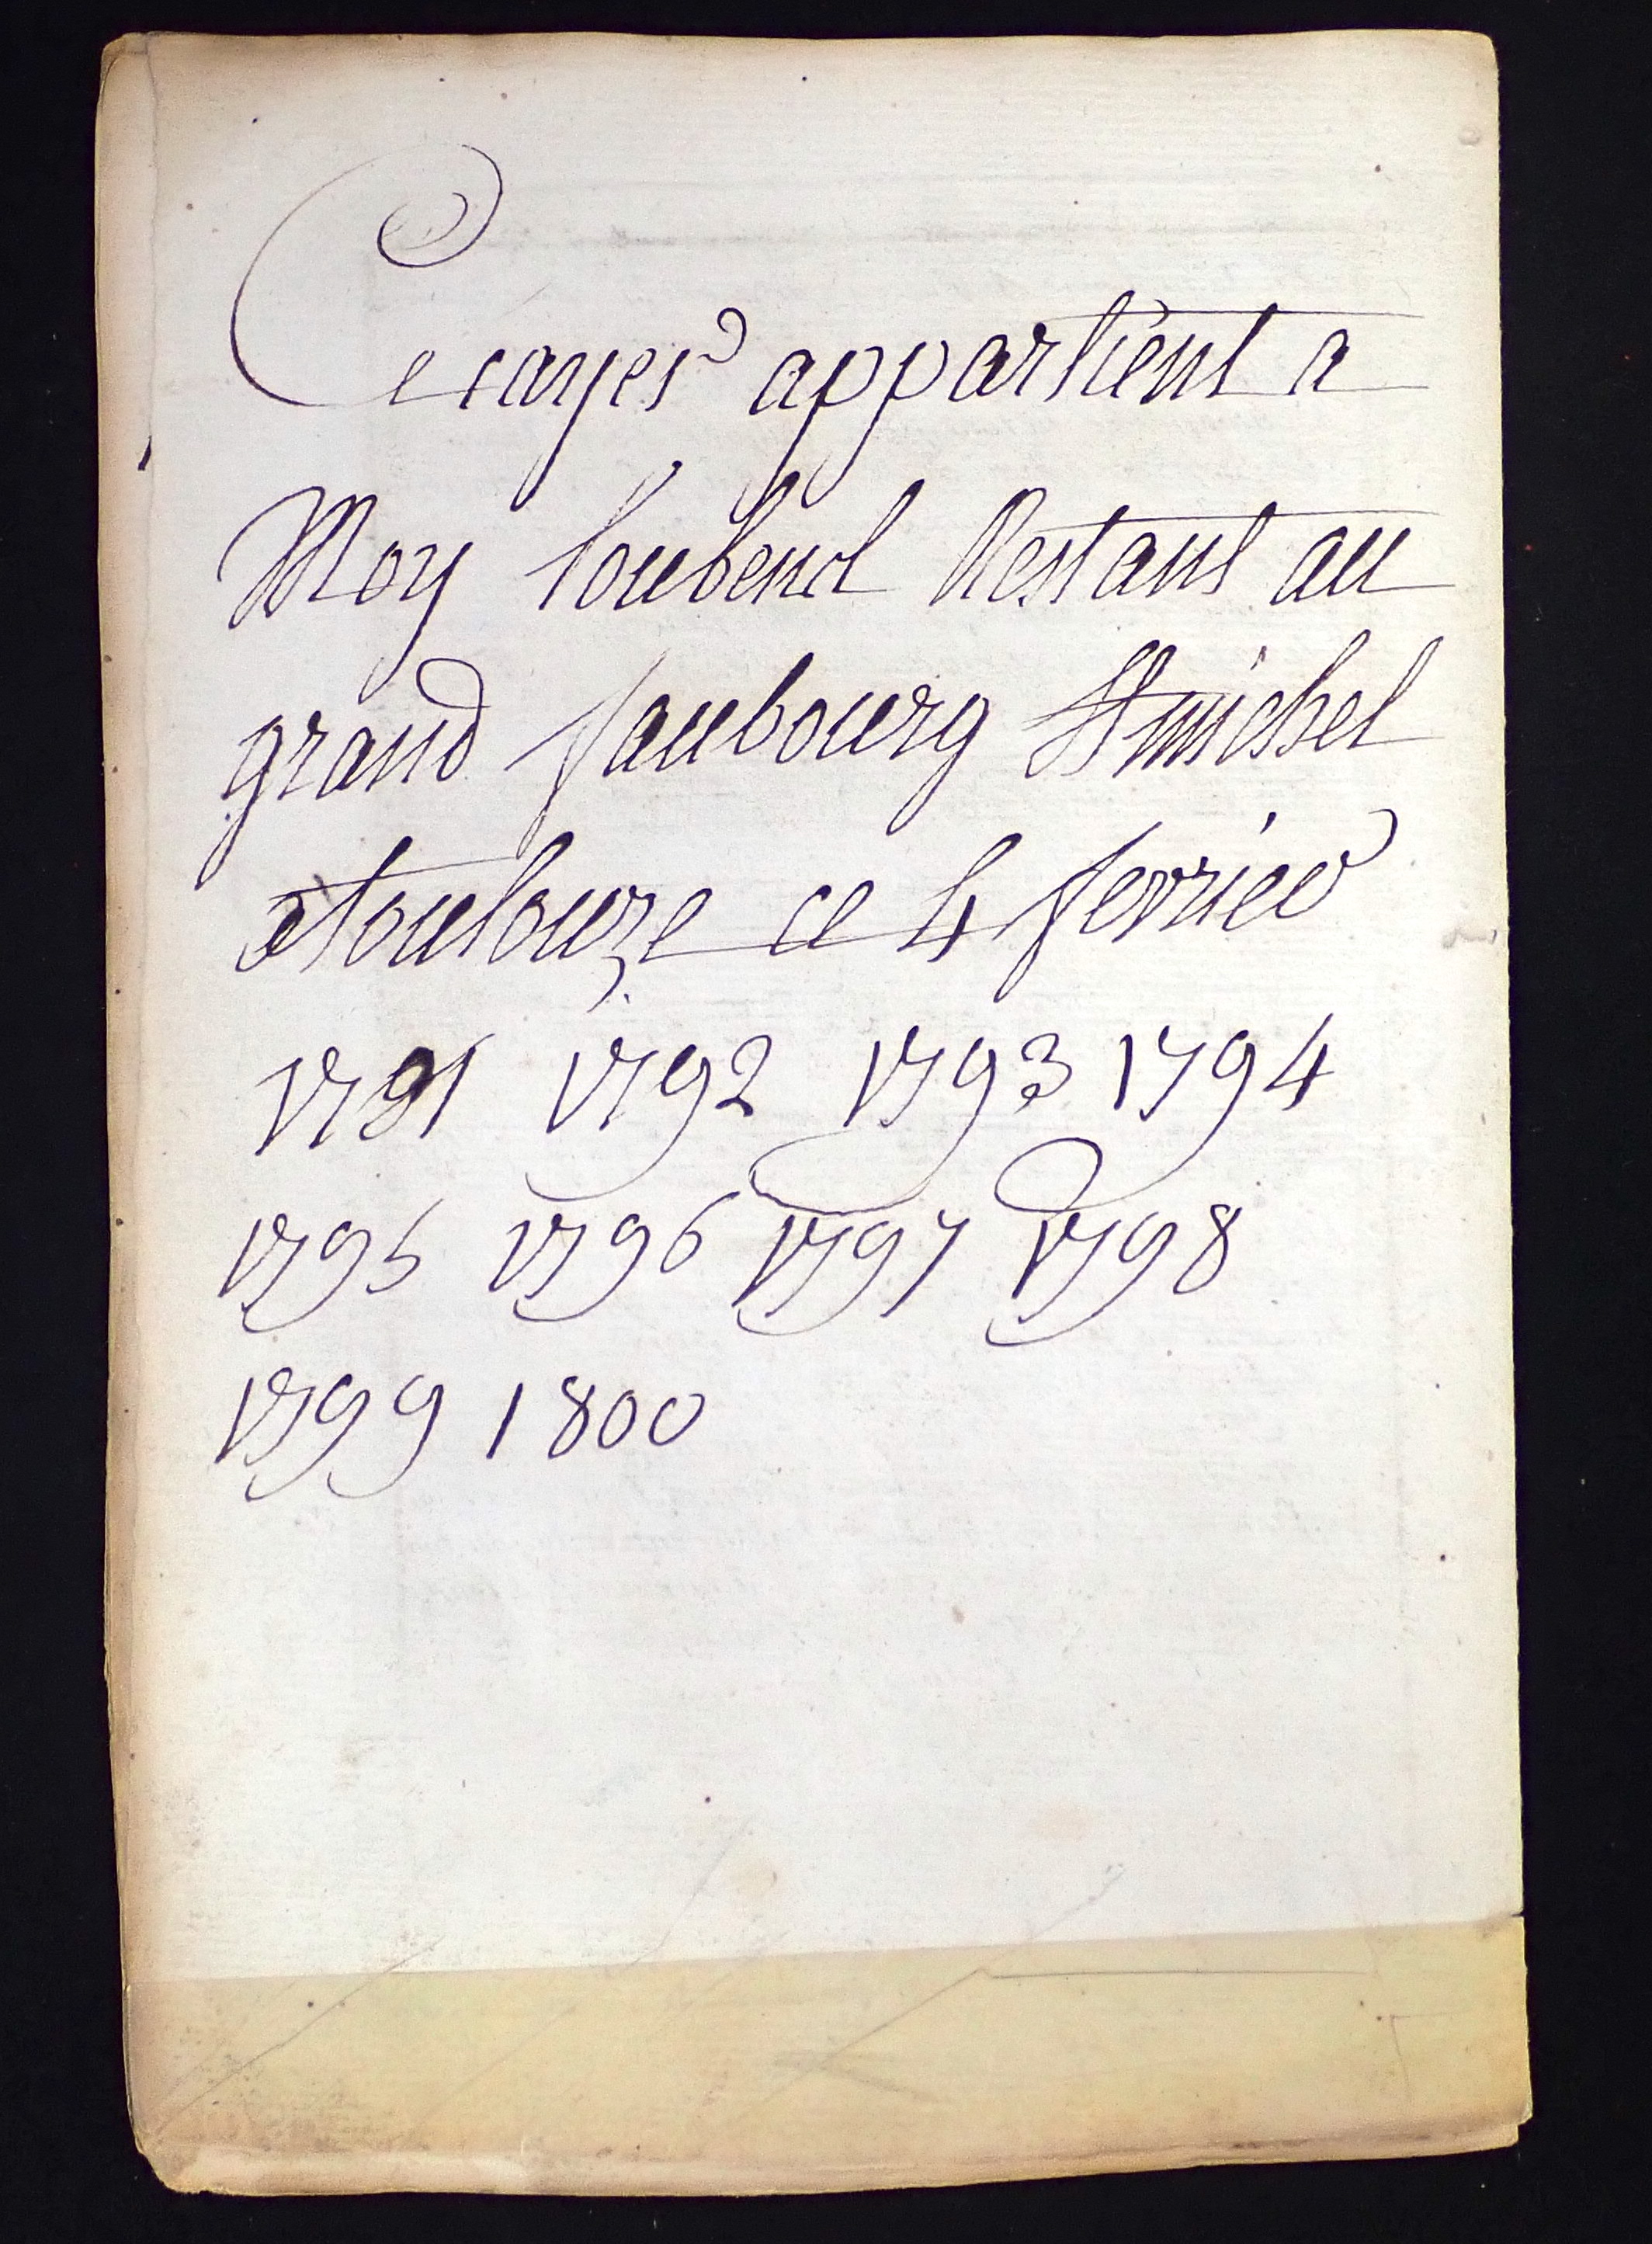 Ce cayer appartient a
Moy Loubend Restant au
grand faubourg St michel
a toulouze ce 4 fevrier
1791 1792 1793 1794
1795 1796 1797 1798
1799 1800